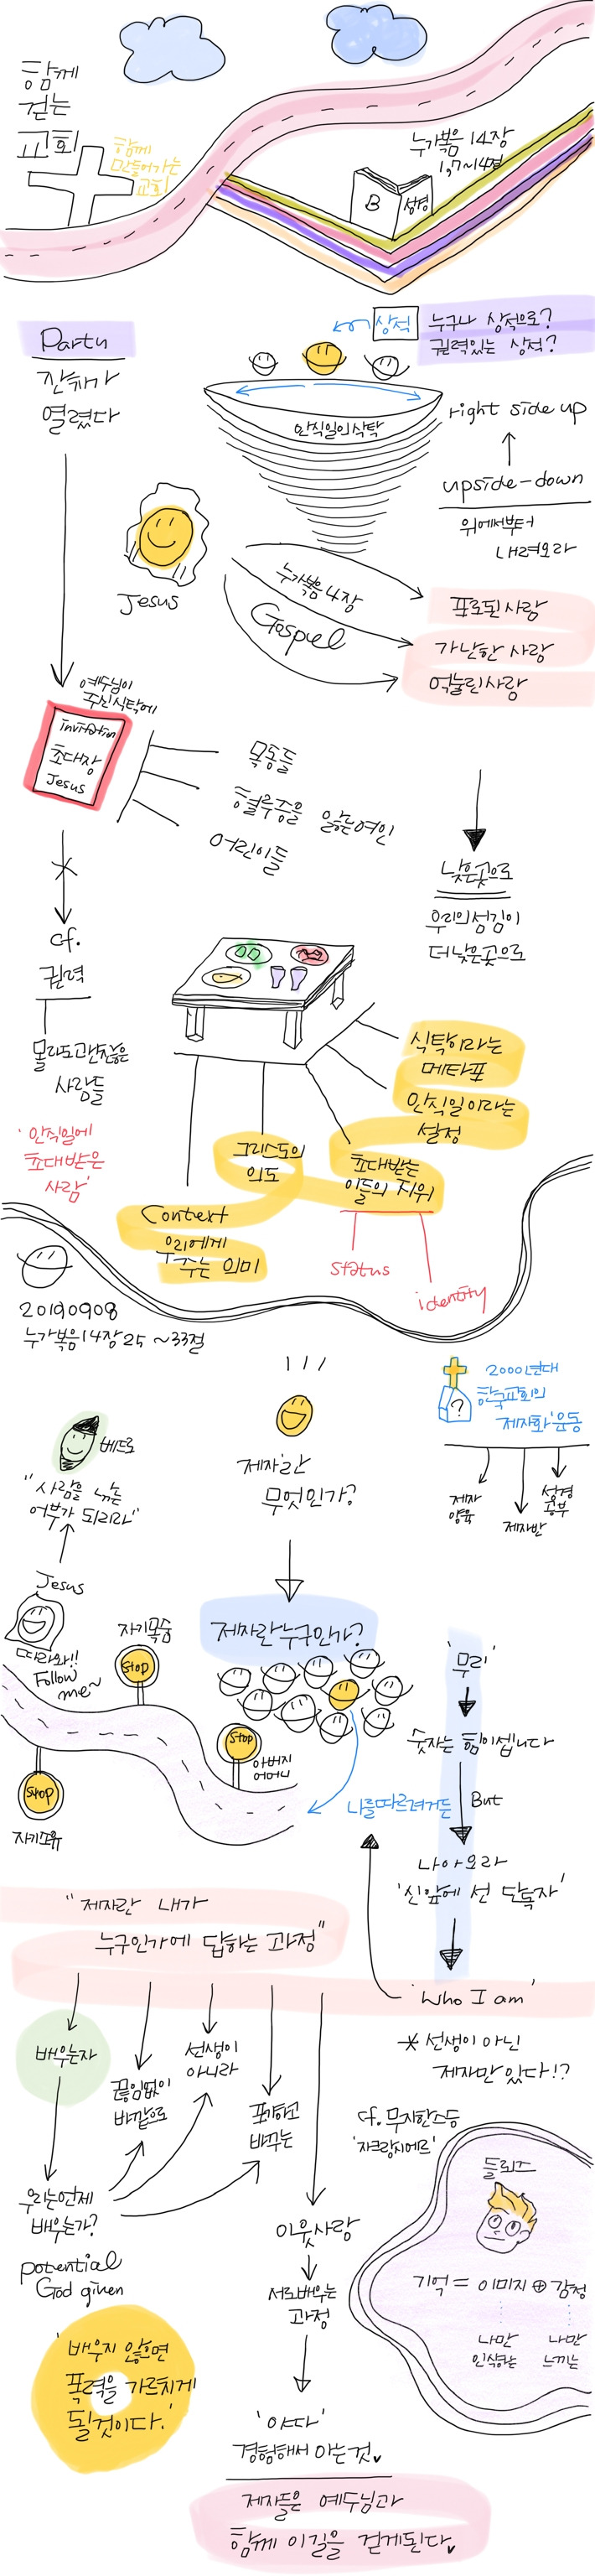 함께
걷는
교회
함께
만들어가는
교회
누가복음 14장
1,7~14절
B
성경
Party
잔치가
열렸다
상석
누구나 상석으로?
권력있는 상석?
안식일의 식탁
right side up
upside-down
위에서부터
내려오라
Jesus
누가복음 4장
Gospel
포로된 사람
가난한 사람
억눌린 사람
예수님이
주신 식탁에
invitation
초대장
Jesus
목동들
혈루증을 앓는 여인
어린이들
낮은곳으로
우리의 섬김이
더 낮은 곳으로
cf.
권력
몰라도 괜찮은
사람들
'안식일에
초대받은
사람'
식탁이라는
메타포
안식일이라는
설정
그리스도의
의도
초대받는
이들의 지위
Context
우리에게
주는 의미
status
identity
20190908
누가복음 14장 25 ~33절
2000년대
한국교회의
'제자화' 운동
?
제자
양육
제자반
성경
공부
베드로
"사람을 낚는
어부가 되리라"
'제자'란
무엇인가?
Jesus
따라와!!
Follow
me~
자기목숨
Stop
제자란 누구인가?
'무리'
숫자는 힘이 셉니다
Stop
아버지
어머니
Stop
자기소유
나를 따르려거든
But
나아오라
'신 앞에 선 단독자'
"제자란 내가
누구인가에 답하는 과정"
'Who I am'
* 선생이 아닌
제자만 있다!?
배우는자
끊임없이
바깥으로
선생이
아니라
포기하고
바꾸는
cf. 무지한 스승
'자크랑시에르'
우리는 언제
배우는가?
potential
God given
이웃사랑
서로 배우는
과정
들뢰즈
기억 = 이미지 ⊕ 감정
나만
인식하는
나만
느끼는
'배우지 않으면
폭력을 가르치게
될것이다.'
'야다'
경험해서 아는 것.
제자들은 예수님과
함께 이길을 걷게된다.